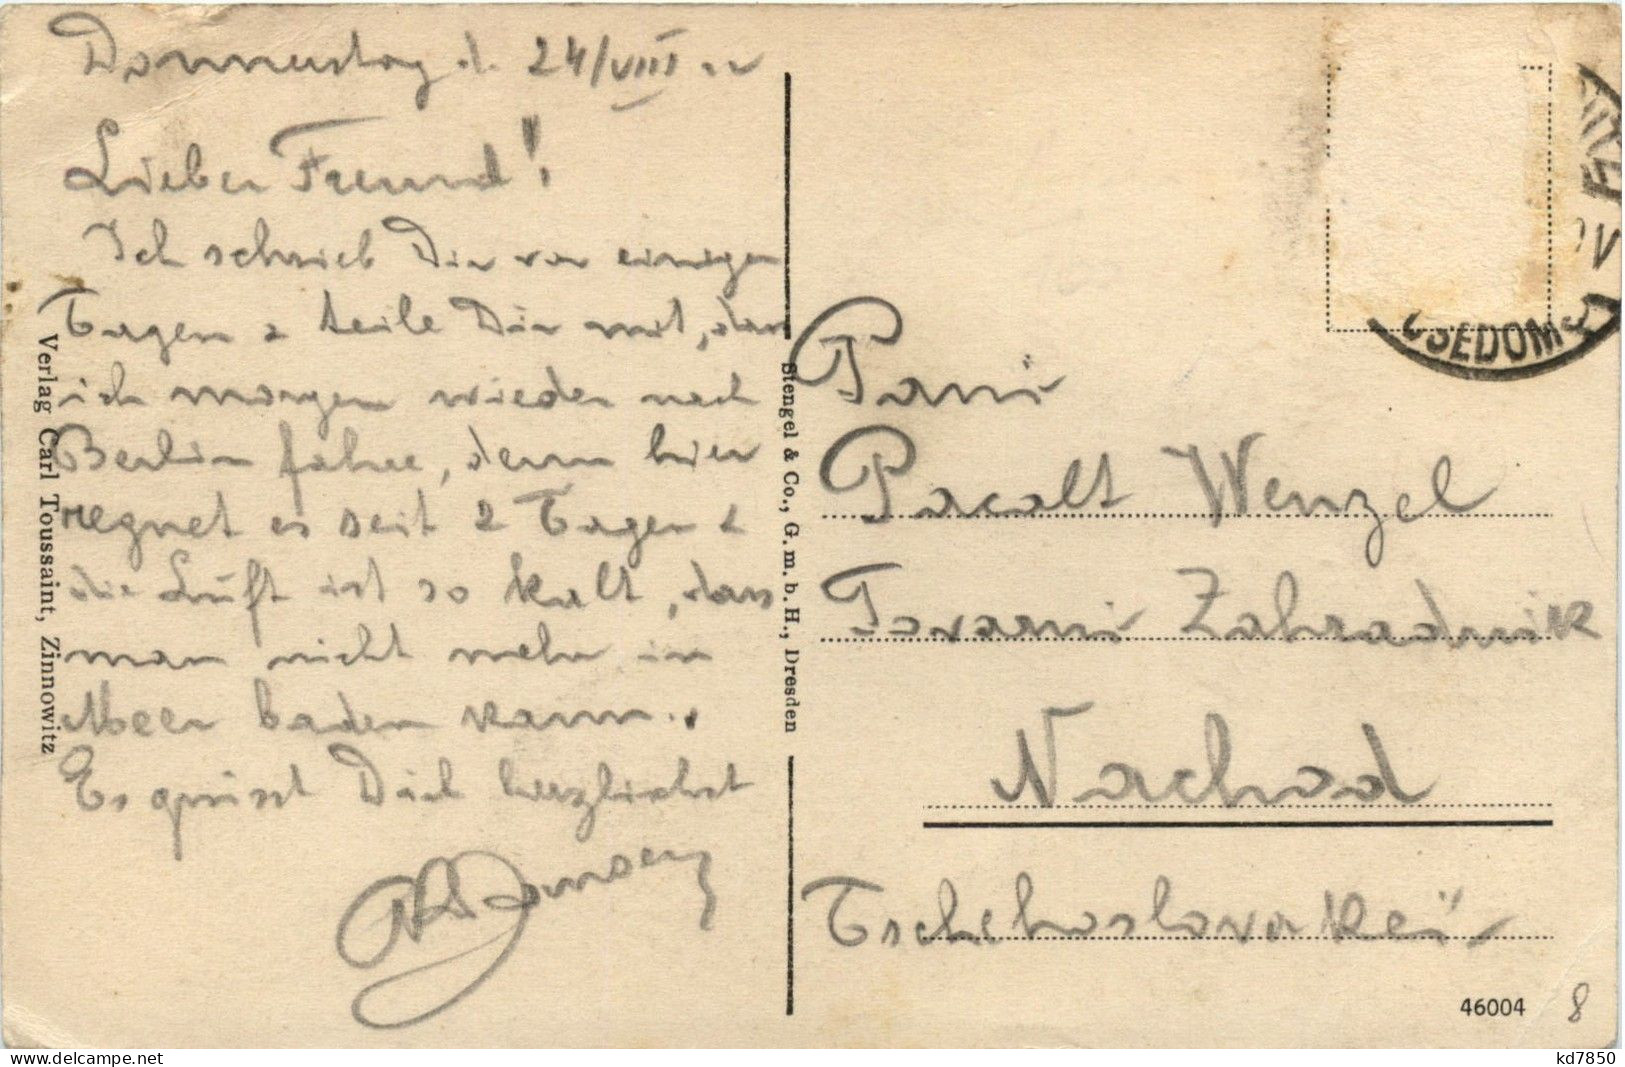 Donnerstag d. 24/VIII
Lieber Freund!
Ich schrieb Dir vor einigen
Tagen & teile Dir mit, dass
ich morgen wieder nach
Berlin fahre, denn hier
regnet es seit 2 Tagen &
die Luft ist so kalt, dass
man nicht mehr im
Meer baden kann.
Es grüsst Dich herzlichst
Verlag Carl Toussaint, Zinnowitz
Stengel & Co., G. m. b. H., Dresden
USEDOM
Pani
Pacalt Wenzel
Tovarni Zahradnik
Nachod
Tschechoslovakei
46004
8
kd7850